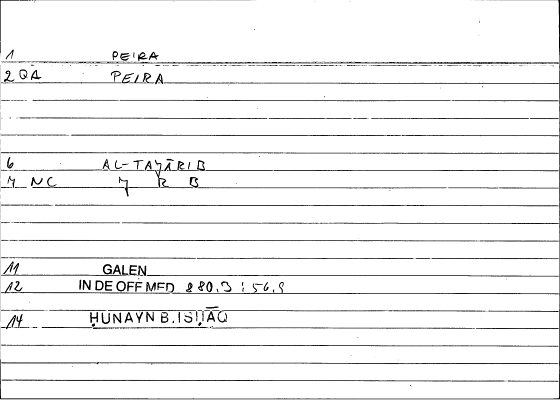 1 PEIRA
2 QA PEIRA
6 AL-TAJĀRIB
7 NC J R B
11 GALEN
12 IN DE OFF MED 880,3 : 56,9
14 ḤUNAYN B. ISḤĀQ